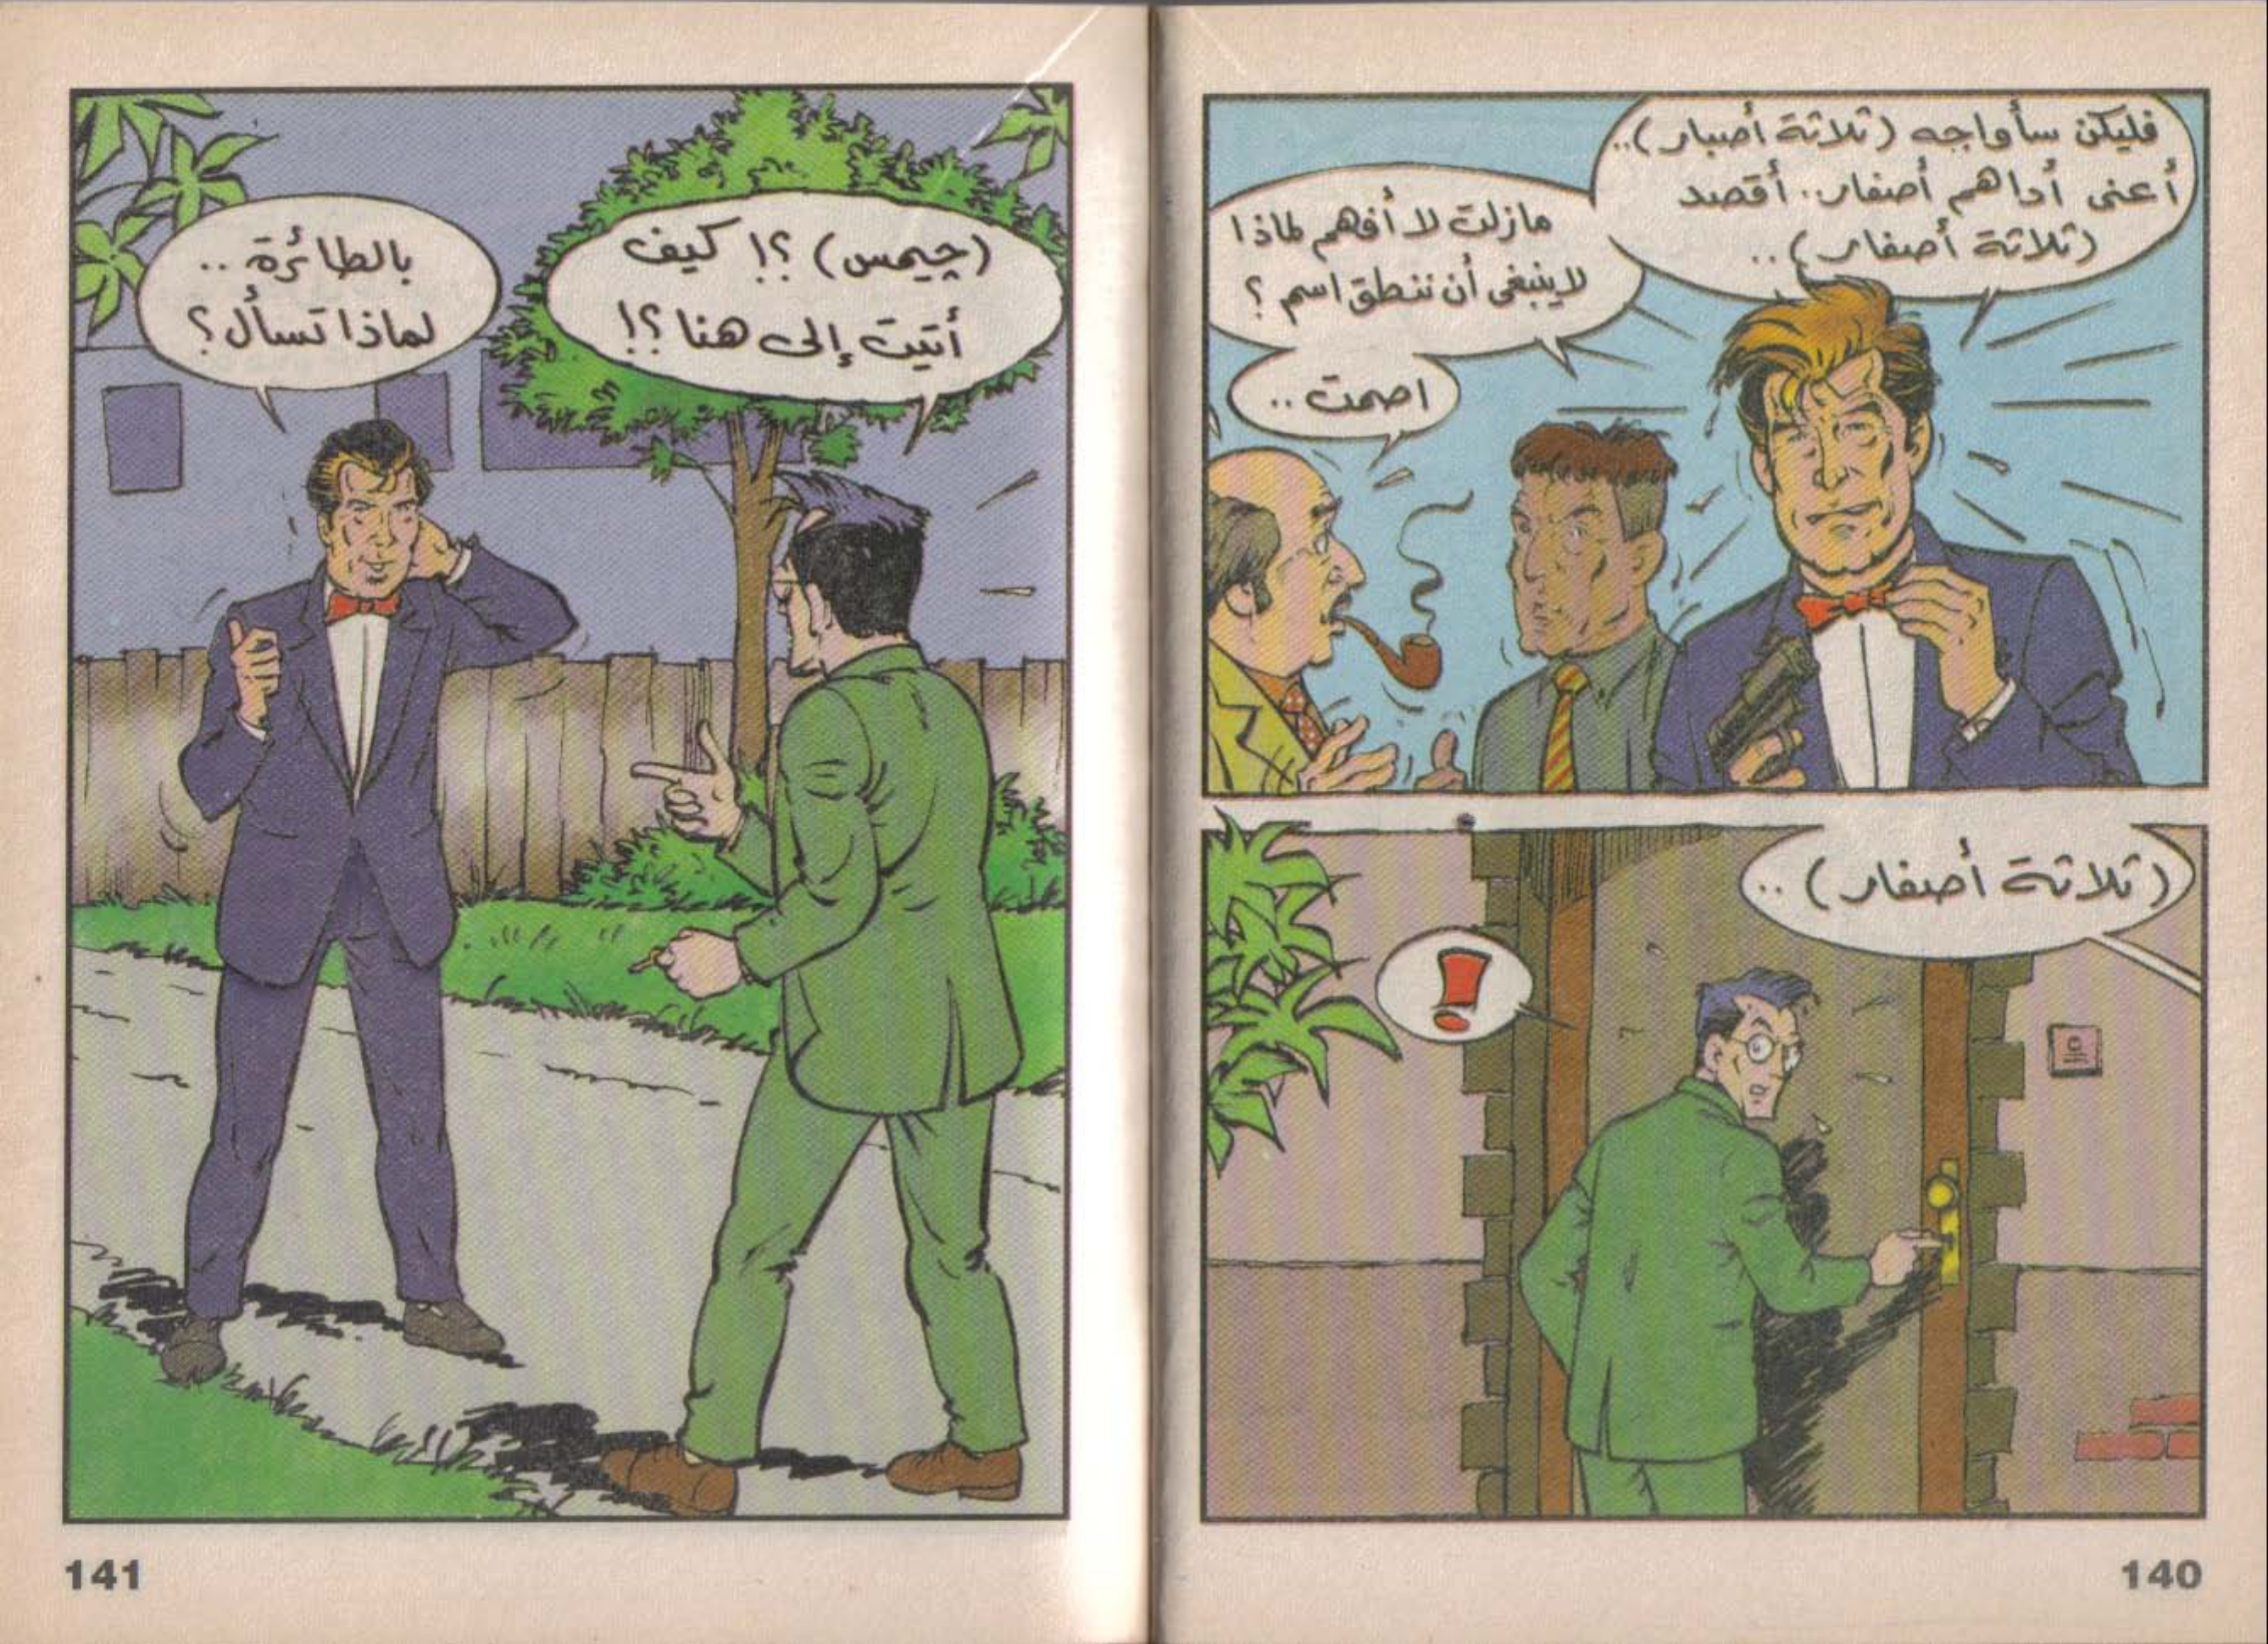 فليكن سأواجه (ثلاثة أصبار)..
أعنى أداهم أصفار.. أقصد
(ثلاثة أصفار)..
مازلت لا أفهم لماذا
لا ينبغى أن ننطق اسم ؟
اصمت ..
(ثلاثة أصفار) ..
!
140
(چيمس) ؟! كيف
أتيت إلى هنا ؟!
بالطائرة ..
لماذا تسأل ؟
141